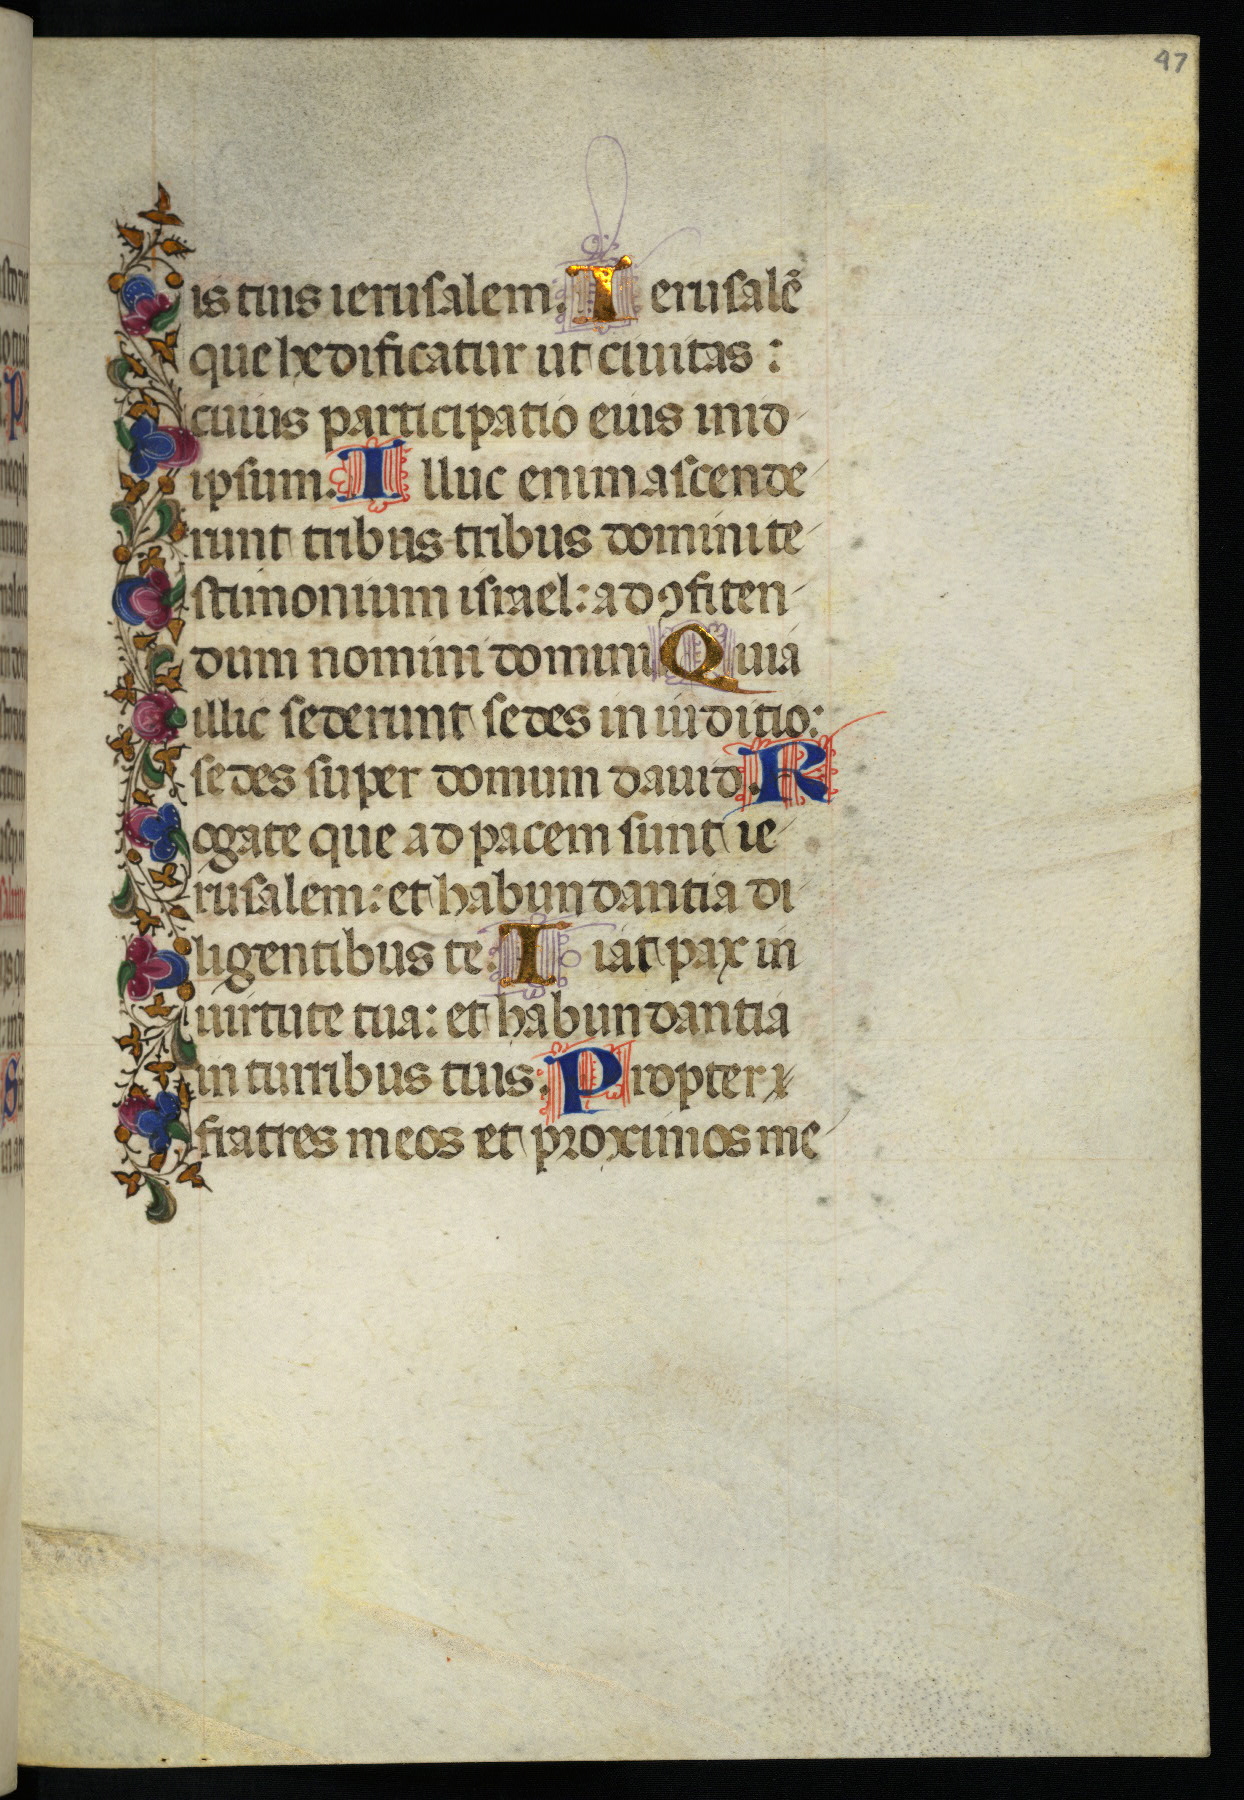 47
is tuis ierusalem. I erusalē
que hedificatur ut ciuitas :
cuius participatio eius inid
ipsum. I lluc enim ascende
runt tribus tribus domini te
stimonium israel: ad ꝯfiten
dum nomini domini Quia
illic sederunt sedes in iuditio:
sedes super domum dauid. R
ogate que ad pacem sunt ie
rusalem: et habundantia di
ligentibus te. I iat pax in
uirtute tua: et habundantia
in turribus tuis. Propter
fratres meos et proximos me